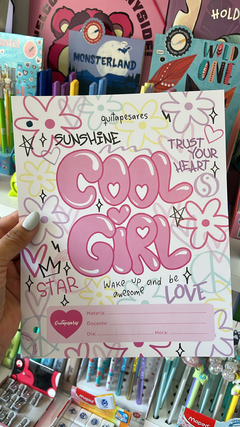 HOLD
MONSTERLAND
quitapesares
SUNSHINE
TRUST
YOUR
HEART
COOL
GIRL
STAR
Wake up and be
awesome
LOVE
quitapesares
Materia:
Docente:
Día:
Hora:
Maped